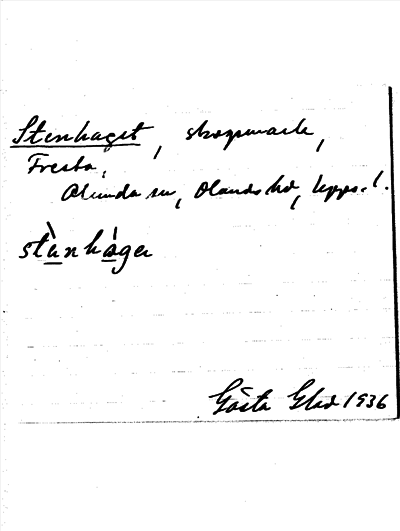 Stenhaget, skogsmark,
Fresta,
Alunda sn, Olands hd, Upps. l.
stànhàgen
Gösta Glad 1936